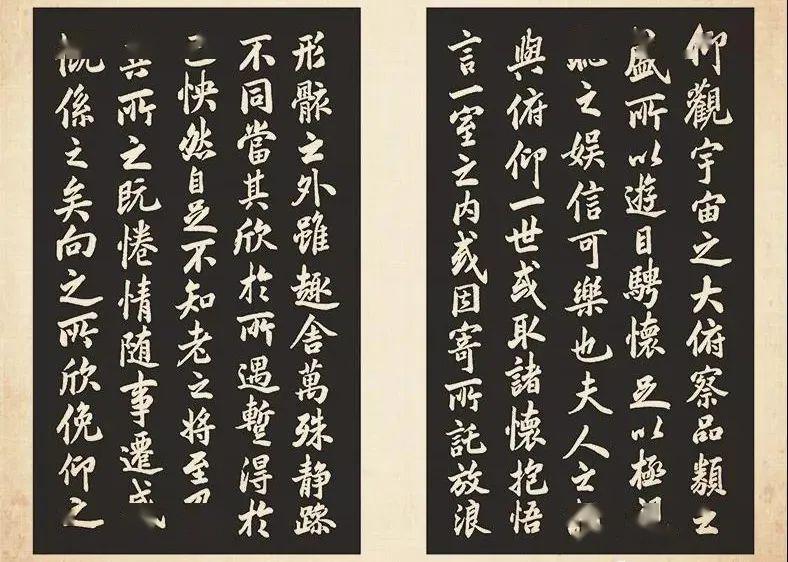 仰觀宇宙之大俯察品類之
盛所以遊目騁懷足以極
之娛信可樂也夫人之
與俯仰一世或取諸懷抱悟
言一室之内或因寄所託放浪
形骸之外雖趣舍萬殊静躁
不同當其欣於所遇暫得於
怏然自足不知老之將至
其所之既惓情随事遷
慨係之矣向之所欣俛仰之